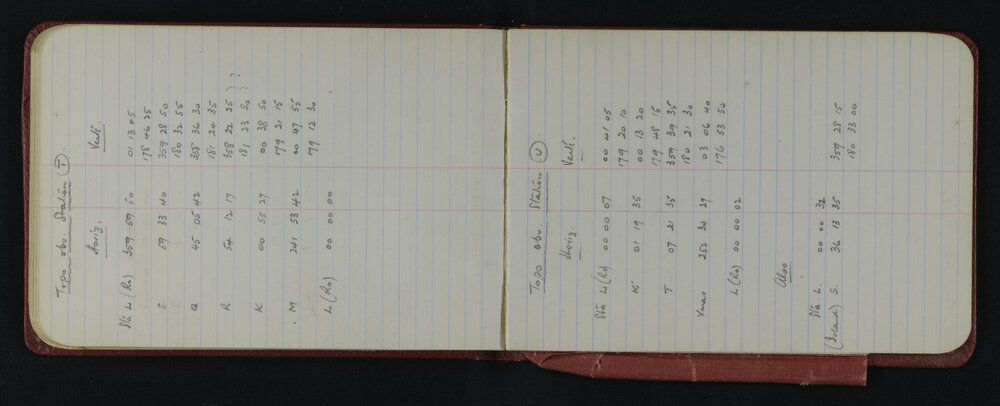 Topo obs. Station (T)
Horiz. Vert.
Sta L (Ro) 359 59 50 01 13 45
178 46 25
S 59 33 40 359 28 50
180 32 55
Q 45 05 42 358 36 30
181 24 35
R 54 12 17 358 22 25 ) ?
181 23 50 ) ?
K 00 55 27 00 38 50
179 21 15
M 241 53 42 00 47 55
179 12 30
L (Ro) 00 00 00
Topo obs. Station (U)
Horiz Vert.
Sta L (Ro) 00 00 07 00 41 05
179 20 10
K 01 19 35 00 13 20
179 48 15
T 07 21 35 359 39 35
180 21 30
Xmas 252 34 29 03 06 40
176 53 50
L (Ro) 00 00 02
Also
Sta. L. 00 00 32
(Island) S. 36 13 35 359 28 15
180 33 00